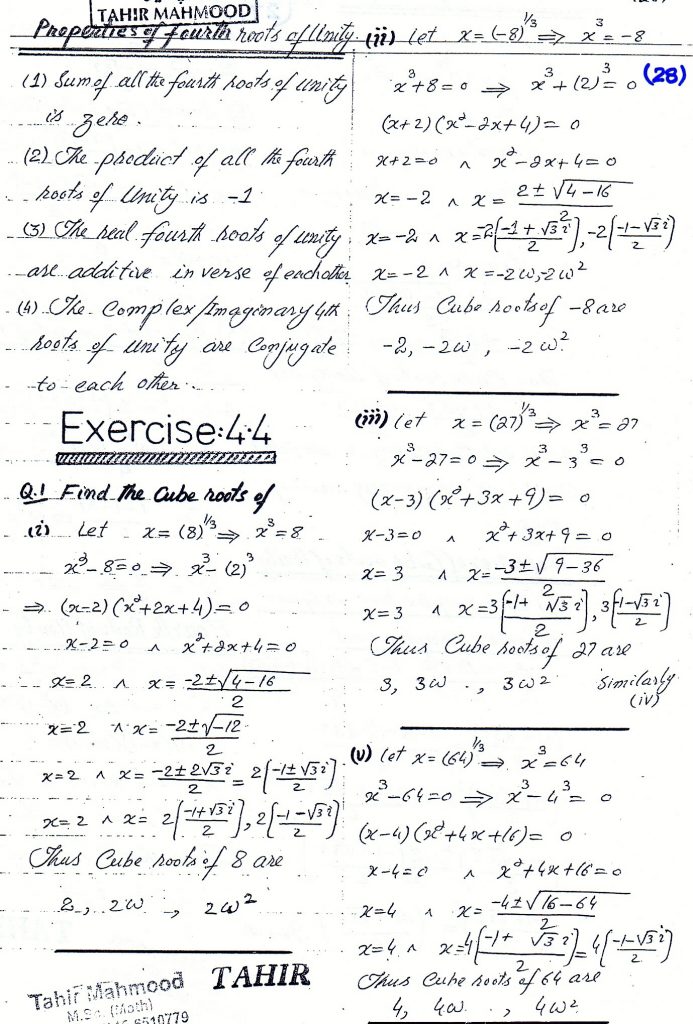 TAHIR MAHMOOD
Properties of fourth roots of Unity.
(1) Sum of all the fourth roots of unity
is zero.
(2) The product of all the fourth
roots of Unity is -1
(3) The real fourth roots of unity
are additive inverse of each other
(4) The Complex/Imaginary 4th
roots of unity are Conjugate
to each other.
Exercise:4.4
Q.1 Find the Cube roots of
(i) Let x = (8)^{1/3} ⇒ x³ = 8
x³-8=0 ⇒ x³-(2)³
⇒ (x-2)(x²+2x+4)=0
x-2=0 ∧ x²+2x+4=0
x=2 ∧ x= (-2±√4-16)/2
x=2 ∧ x= (-2±√-12)/2
x=2 ∧ x= (-2±2√3i)/2 = 2((-1±√3i)/2)
x=2 ∧ x= 2((-1+√3i)/2), 2((-1-√3i)/2)
Thus Cube roots of 8 are
2, 2ω, 2ω²
Tahir Mahmood TAHIR
M.Sc. (Math)
6510779
(ii) let x=(-8)^{1/3} ⇒ x³=-8
(28)
x³+8=0 ⇒ x³+(2)³=0
(x+2)(x²-2x+4)=0
x+2=0 ∧ x²-2x+4=0
x=-2 ∧ x= (2±√4-16)/2
x=-2 ∧ x=-2((-1+√3i)/2), -2((-1-√3i)/2)
x=-2 ∧ x=-2ω,-2ω²
Thus Cube roots of -8 are
-2, -2ω, -2ω².
(iii) let x=(27)^{1/3} ⇒ x³=27
x³-27=0 ⇒ x³-3³=0
(x-3)(x²+3x+9)=0
x-3=0 ∧ x²+3x+9=0
x=3 ∧ x= (-3±√9-36)/2
x=3 ∧ x=3((-1+√3i)/2), 3((-1-√3i)/2)
Thus Cube roots of 27 are
3, 3ω, 3ω² Similarly
(iv)
(v) let x=(64)^{1/3} ⇒ x³=64
x³-64=0 ⇒ x³-4³=0
(x-4)(x²+4x+16)=0
x-4=0 ∧ x²+4x+16=0
x=4 ∧ x= (-4±√16-64)/2
x=4 ∧ x=4((-1+√3i)/2)=4((-1-√3i)/2)
Thus Cube roots of 64 are
4, 4ω, 4ω²